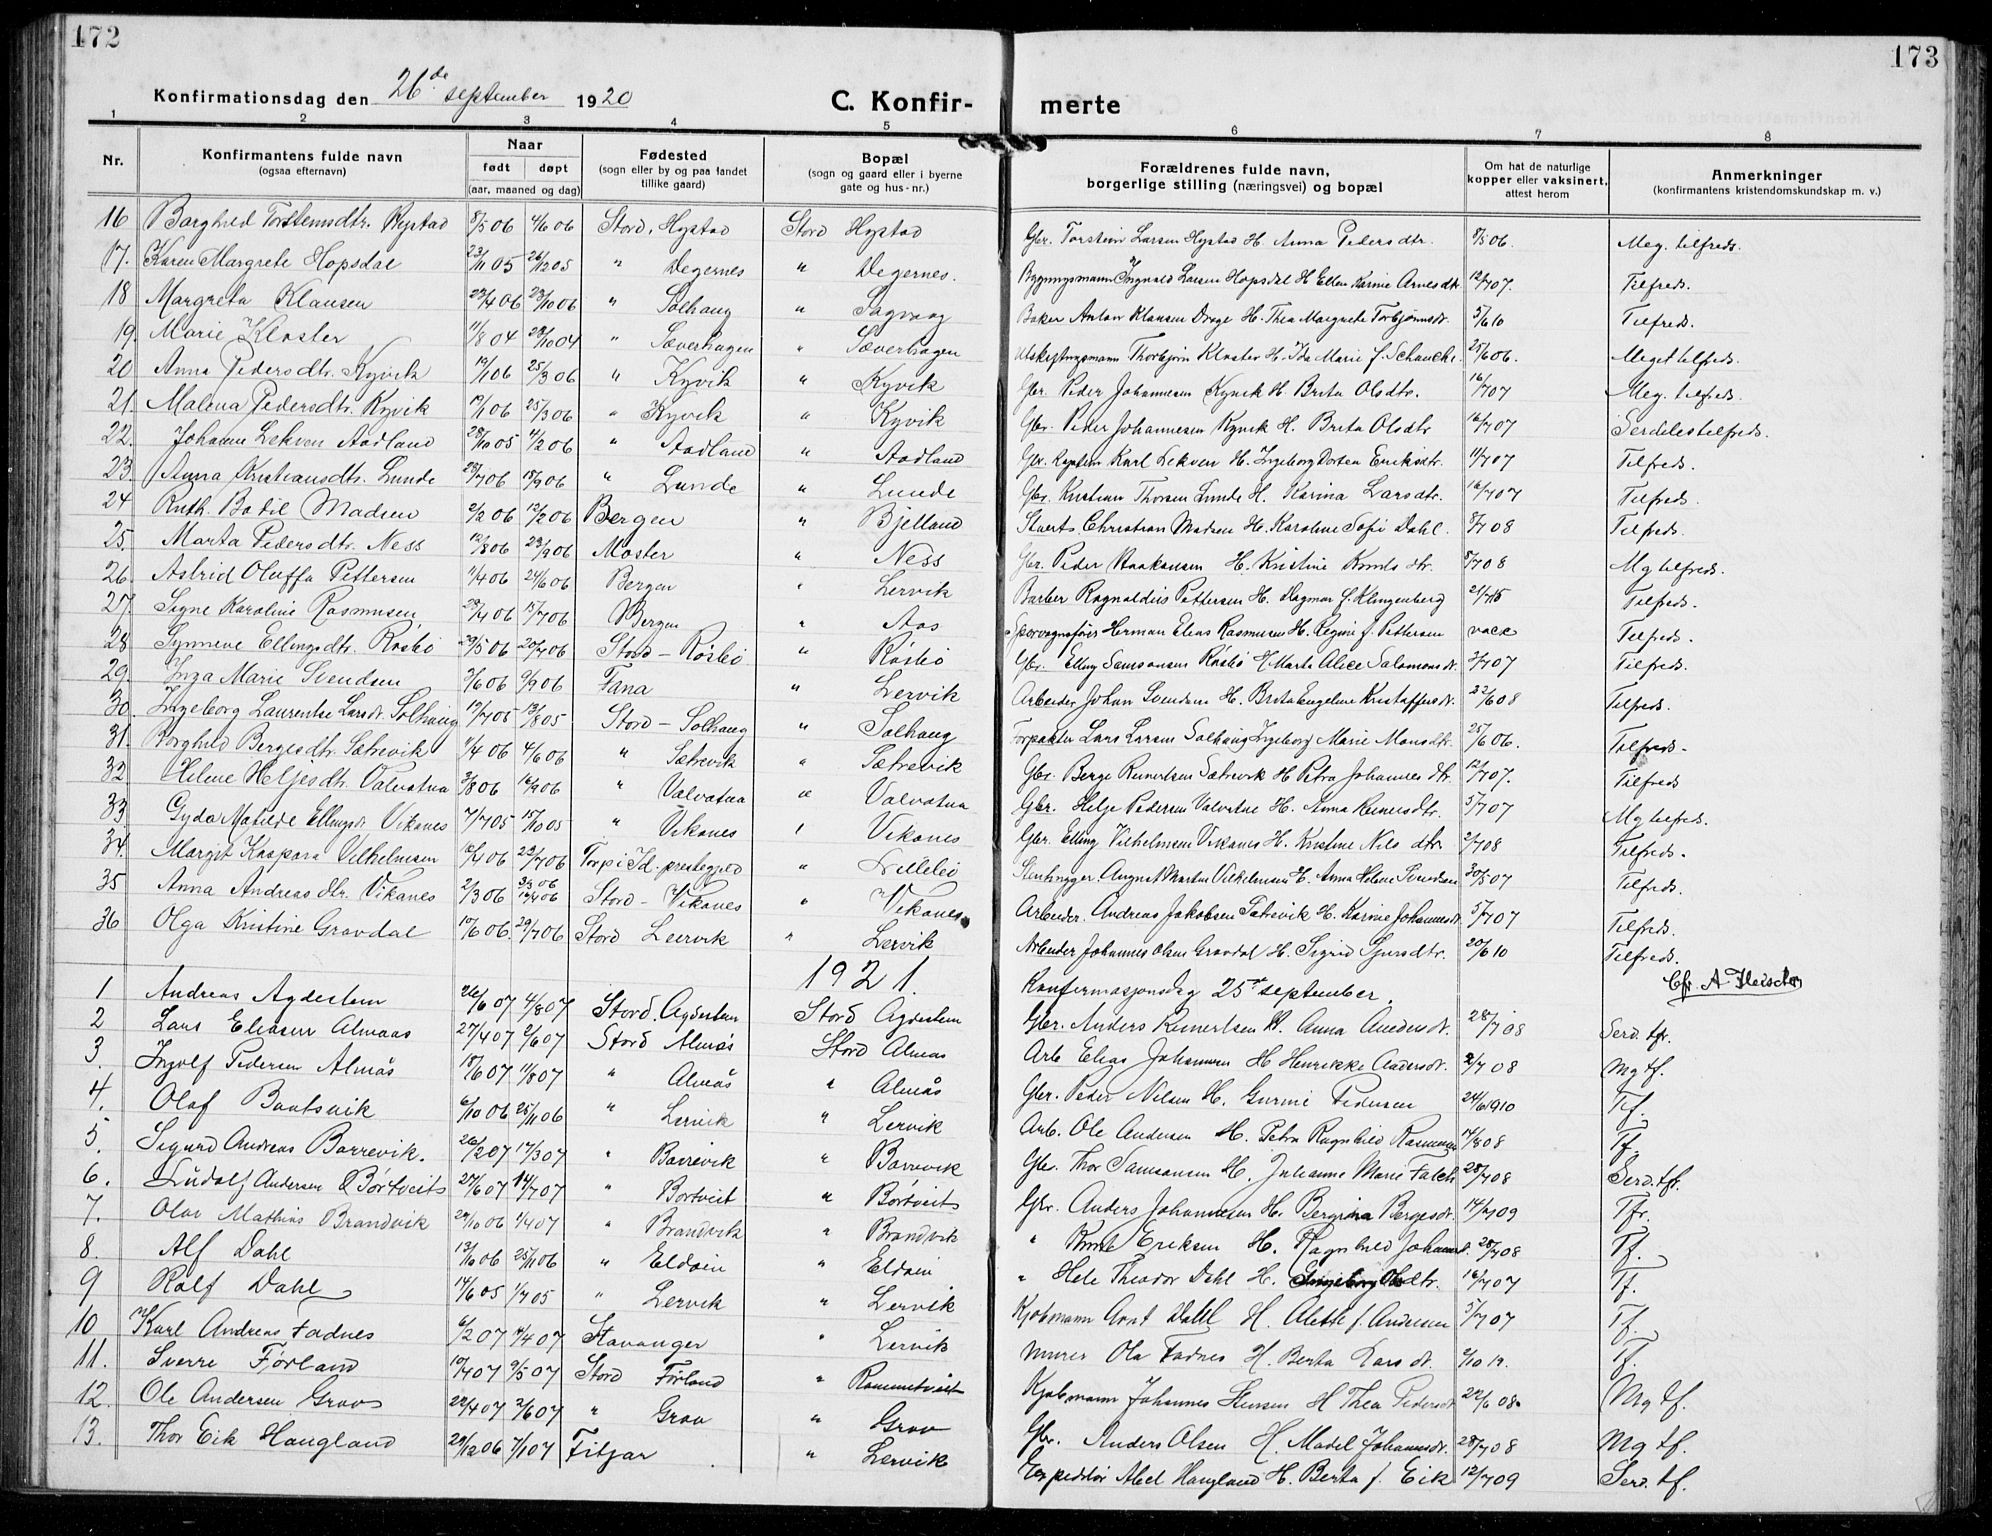 172
173
Konfirmationsdag den 26de september 1920
C. Konfir- merte
1 2 3 4 5 6 7 8
Nr.
Konfirmantens fulde navn
(ogsaa efternavn)
Naar
født døpt
(aar, maaned og dag)
Fødested
(sogn eller by og paa landet
tillike gaard)
Bopæl
(sogn og gaard eller i byerne
gate og hus-nr.)
Forældrenes fulde navn,
borgerlige stilling (næringsvei) og bopæl
Om hat de naturlige
kopper eller vaksinert,
attest herom
Anmerkninger
(konfirmantens kristendomskundskap m. v.)
16 Borghild Torsteinsdtr. Hystad 8/5 06 4/6 06 Stord, Hystad Stord Hystad Gbr. Torstein Larsen Hystad H. Anna Pedersdtr. 8/5 06. Meg. tilfreds.
17. Karen Margrete Hopsdal 23/11 05 26/12 05 " Degernes " Degernes. Bygningsmann Ingvald Larsen Hopsdal H Ellen Karine Arnesdtr 12/7 07. Tilfreds.
18 Margreta Klausen 29/4 06 28/10 06 " Solhaug " Sagvaag Baker Anton Klausen Drage H. Thea Margrete Torbjørnsdt. 5/6 10 Tilfreds.
19. Marie Kloster 11/8 04 23/10 04 " Sæverhagen " Sæverhagen Utskiftningsmann Thorbjørn Kloster H. Ida Marie f. Schancke. 25/6 06. Meget tilfreds.
20 Anna Pedersdtr. Kyvik 19/1 06 25/3 06 " Kyvik " Kyvik Gbr. Peder Johannesen Kyvik H. Brita Olsdtr. 16/7 07 Meg. tilfreds.
21. Malena Pedersdtr. Kyvik 19/1 06 25/3 06 " Kyvik " Kyvik Gbr. Peder Johannesen Kyvik H. Brita Olsdtr 16/7 07 Serdelestilfreds.
22. Johanne Lekven Aadland 28/10 05 4/2 06 " Aadland " Aadland Gbr. Kaptein Karl Lekven H. Ingeborg Dortea Eriksdtr. 11/7 07 Tilfreds.
23. Anna Kristiansdtr. Lunde 23/7 06 15/9 06 " Lunde " Lunde Gbr. Kristian Thorsen Lunde H. Karina Larsdtr. 16/7 07 Tilfreds.
24 Ruth Bodil Madsen 2/2 06 12/2 06 Bergen " Bjelland Stuerts Christian Madsen H. Karoline Sofi Dahl. 8/7 08 Tilfreds.
25. Marta Pedersdtr. Ness 12/8 06 23/9 06 Moster " Ness Gbr. Peder Haakonsen H. Kristine Knuts dtr. 8/7 08 Mg tilfreds.
26. Astrid Oluffa Pettersen 11/4 06 24/6 06 Bergen " Lervik Barber Ragnaldus Pettersen H. Dagmar f. Klingenberg 21/7 15 Tilfreds.
27. Signe Karoline Rasmusen 29/4 06 15/7 06 Bergen " Aas Sporvognsfører Herman Elias Rasmusen H. Regine f. Pettersen vacc Tilfreds.
28 Synneve Ellingsdtr. Røsbø 29/5 06 20/7 06 Stord - Røsbø " Røsbø Gbr. Elling Samsonsen Røsbø H Marta Alice Salomonsdt. 2/7 07 Tilfreds.
29. Inga Marie Svendsen 3/6 06 9/9 06 Fana " Lervik Arbeider Johan Svendsen H. Brita Engeline Kristoffersdt. 22/6 08 Tilfreds.
30. Ingeborg Laurentse Larsdt. Solhaug 19/7 05 13/8 05 Stord - Solhaug " Solhaug Forpakter Lars Larsen Solhaug Ingeborg Marie Monsdtr. 25/6 06. Tilfreds.
31. Borghild Bergesdtr. Sætrevik 11/4 06 4/6 06 " Sætrevik " Sætrevik Gbr. Berge Reinertsen Sætrevik H Petra Johannes dtr. 12/7 07. Tilfreds
32 Helene Heljesdtr. Valvatna 3/8 06 16/9 06 " Valvatna " Valvatna Gbr. Helje Pedersen Valvatne H. Anna Reinersdtr. 5/7 07 Mg tilfreds.
33 Gyda Matilde Ellingsdt. Vikanes 7/7 05 15/10 05 " Vikanes " Vikanes Gbr. Elling Vilhelmsen Vikanes H. Kristine Nils dtr. 2/7 08 Tilfreds.
34. Margit Kaspara Vilhelmsen 16/4 06 29/7 06 Torp i Id. prestegjeld " Lillebø Stenhugger. August Martin Vilhelmsen H. Anna Helene Svendsen 30/5 07 Tilfreds.
35 Anna Andreasdtr. Vikanes 2/3 06 3/3 06 16/4 06 Stord - Vikanes " Vikanes Arbeider. Andreas Jakobsen Sætrevik H. Karine Johannesdt. 5/7 07 Tilfreds.
36 Olga Kristine Gravdal 10/6 06. 29/7 06 Stord Leervik " Lervik Arbeider Johannes Olsen Gravdal H. Sigrid Sjursdtr. 20/6 10 Tilfreds.
Chr. A. Fleischer
1921. Konfirmasjonsdag 25de september.
1 Andreas Agdestein 26/6 07 4/8 07 Stord. Agdestein Stord Agdestein Gbr. Anders Reinertsen H. Anna Andersdt. 28/7 08 Serd. tfr.
2 Lars Eliasen Almaas 27/4 07 2/6 07 Stord Almås Stord Almas Arb Elias Johannesen H Henrikke Andersdt. 2/7 08 Mg tf.
3. Ingolf Pedersen Almås 18/6 07 11/8 07 " Almås " Almås Gbr. Peder Nilsen H. Gurine Pedersen 24/6 1910 Tf.
4. Olaf Baatsvik 6/10 06 25/11 06 " Lervik " Lervik Arb. Ole Andersen H. Petra Ragnhild Rasmusen 14/8 08 Tf.
5. Sigurd Andreas Borrevik. 26/2 07 17/3 07 " Borrevik " Borrevik Gbr. Thor Samsonsen H. Julianne Marie Falch 28/7 08 Serd. tfr.
6. Ludolf Andersen Børtveit 27/6 07 14/7 07 " Børtveit " Børtveit Gbr. Anders Johannesen H. Bergina Bergesdt. 14/7 09 Tfr.
7. Olav Mathias Brandvik 29/10 06 1/4 07 " Brandvik " Brandvik " Knut Eriksen H. Ragnhild Johannesdt. 28/7 08 Tf.
8. Alf Dahl 13/10 06 25/11 06 " Eldøen " Eldøen " Hele Theodor Dahl H. Ingeborg Olsdtr. 16/7 07 Tf.
9 Rolf Dahl 14/6 05 1/7 05 " Lervik " Lervik Kjøbmann Arnt Dahl H. Alette f. Andersen 5/7 07 Tf.
10 Karl Andreas Fadnes 6/2 07 4/4 07 Stavanger " Lervik Murer Ola Fadnes H. Berta Larsdt. 2/10 12. Tf.
11. Sverre Førland 10/4 07 9/5 07 Stord Førland " Rommetveit Kjøbmann Johannes Stensen H Thea Pedersdt 22/6 08. Mg tf.
12. Ole Andersen Grov 22/4 07 2/6 07 " Grov " Grov Gbr. Anders Olsen H. Madel Johannesdt. 28/7 08 Mg tf.
13. Thor Eik Haugland 29/12 06 7/1 07 Fitjar " Lervik Expeditør Abel Haugland H. Berta f. Eik 12/7 09 Serd. tf.